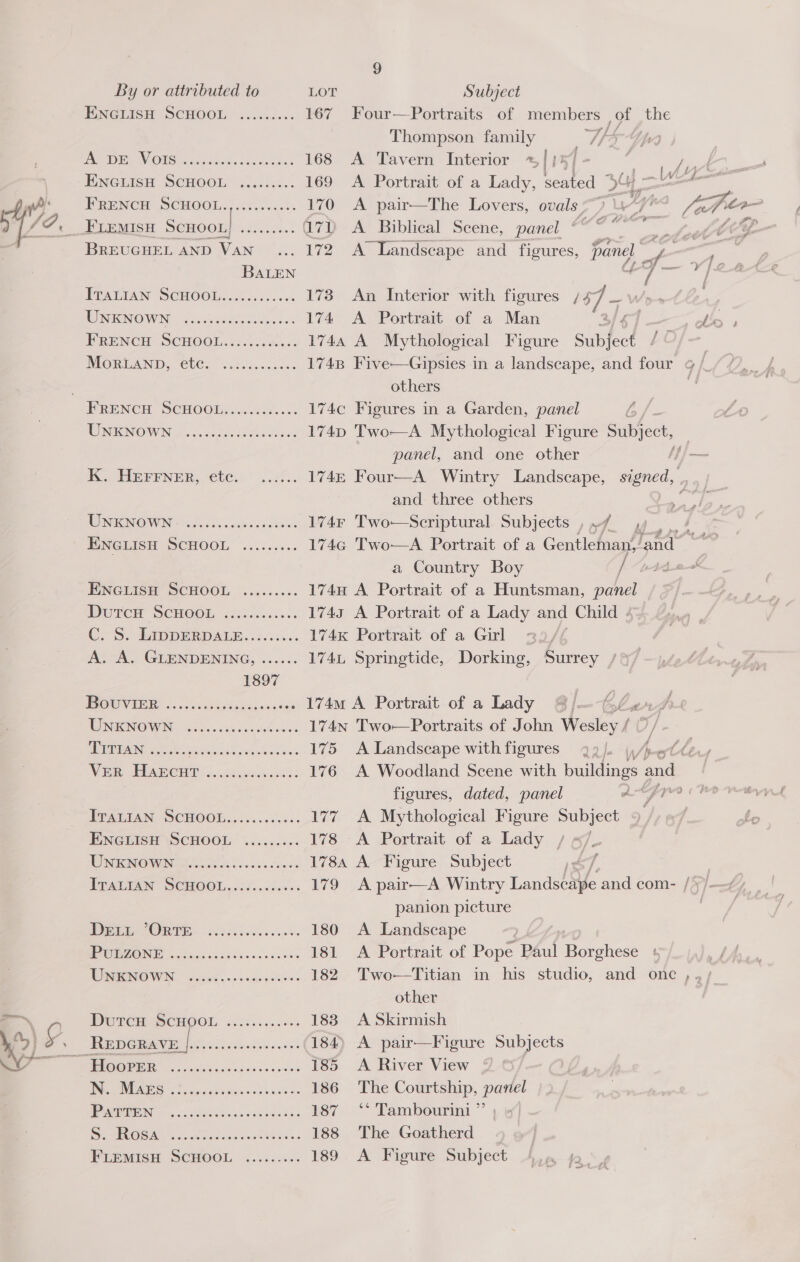 9
By or attributed to LOT Subject
ENGLISH SCHOOL ......... 167 Four—Portraits of members of the
Thompson family
A. DE VOIS ..................... 168 A Tavern Interior
ENGLISH SCHOOL ......... 169 A Portrait of a Lady, seated
FRENCH SCHOOL............ 170 A pair—The Lovers, ovals
FLEMISH SCHOOL ......... 171 A Biblical Scene, panel
BREUGHEL AND VAN ... 172 A Landscape and figures, panel
BALEN
ITALIAN SCHOOL............ 173 An Interior with figures
UNKNOWN ..................... 174 A Portrait of a Man
FRENCH SCHOOL............ 174A A Mythological Figure Subject
MORLAND, etc. ............ 174B Five—Gipsies in a landscape, and four
others
FRENCH SCHOOL............ 174C Figures in a Garden, panel
UNKNOWN ..................... 174D Two—A Mythological Figure Subject,
panel, and one other
K. HEFFNER, etc. ...... 174E Four—A Wintry Landscape, signed,
and three others
UNKNOWN ..................... 174F Two—Scriptural Subjects
ENGLISH SCHOOL ......... 174G Two—A Portrait of a Gentleman, and
a Country Boy
ENGLISH SCHOOL ......... 174H A Portrait of a Huntsman, panel
DUTCH SCHOOL ............ 174J A Portrait of a Lady and Child
C. S. LIDDERDALE......... 174K Portrait of a Girl
A. A. GLENDENING, ...... 174L Springtide, Dorking, Surrey
1897
BOUVIER ........................ 174M A Portrait of a Lady
UNKNOWN ..................... 174N Two—Portraits of John Wesley
TITIAN ........................ 175 A Landscape with figures
VER HAECHT ............... 176 A Woodland Scene with buildings and
figures, dated, panel
ITALIAN SCHOOL............ 177 A Mythological Figure Subject
ENGLISH SCHOOL ......... 178 A Portrait of a Lady
UNKNOWN ..................... 178A A Figure Subject
ITALIAN SCHOOL............ 179 A pair—A Wintry Landscape and com-
panion picture
DELL 'ORTE .................. 180 A Landscape
PULZONE ..................... 181 A Portrait of Pope Paul Borghese
UNKNOWN ..................... 182 Two—Titian in his studio, and one
other
DUTCH SCHOOL ............ 183 A Skirmish
REDGRAVE .................. 184 A pair—Figure Subjects
HOOPER ..................... 185 A River View
N. MAES ..................... 186 The Courtship, panel
PATTEN ..................... 187 “Tambourini”
S. ROSA ..................... 188 The Goatherd
FLEMISH SCHOOL ......... 189 A Figure Subject